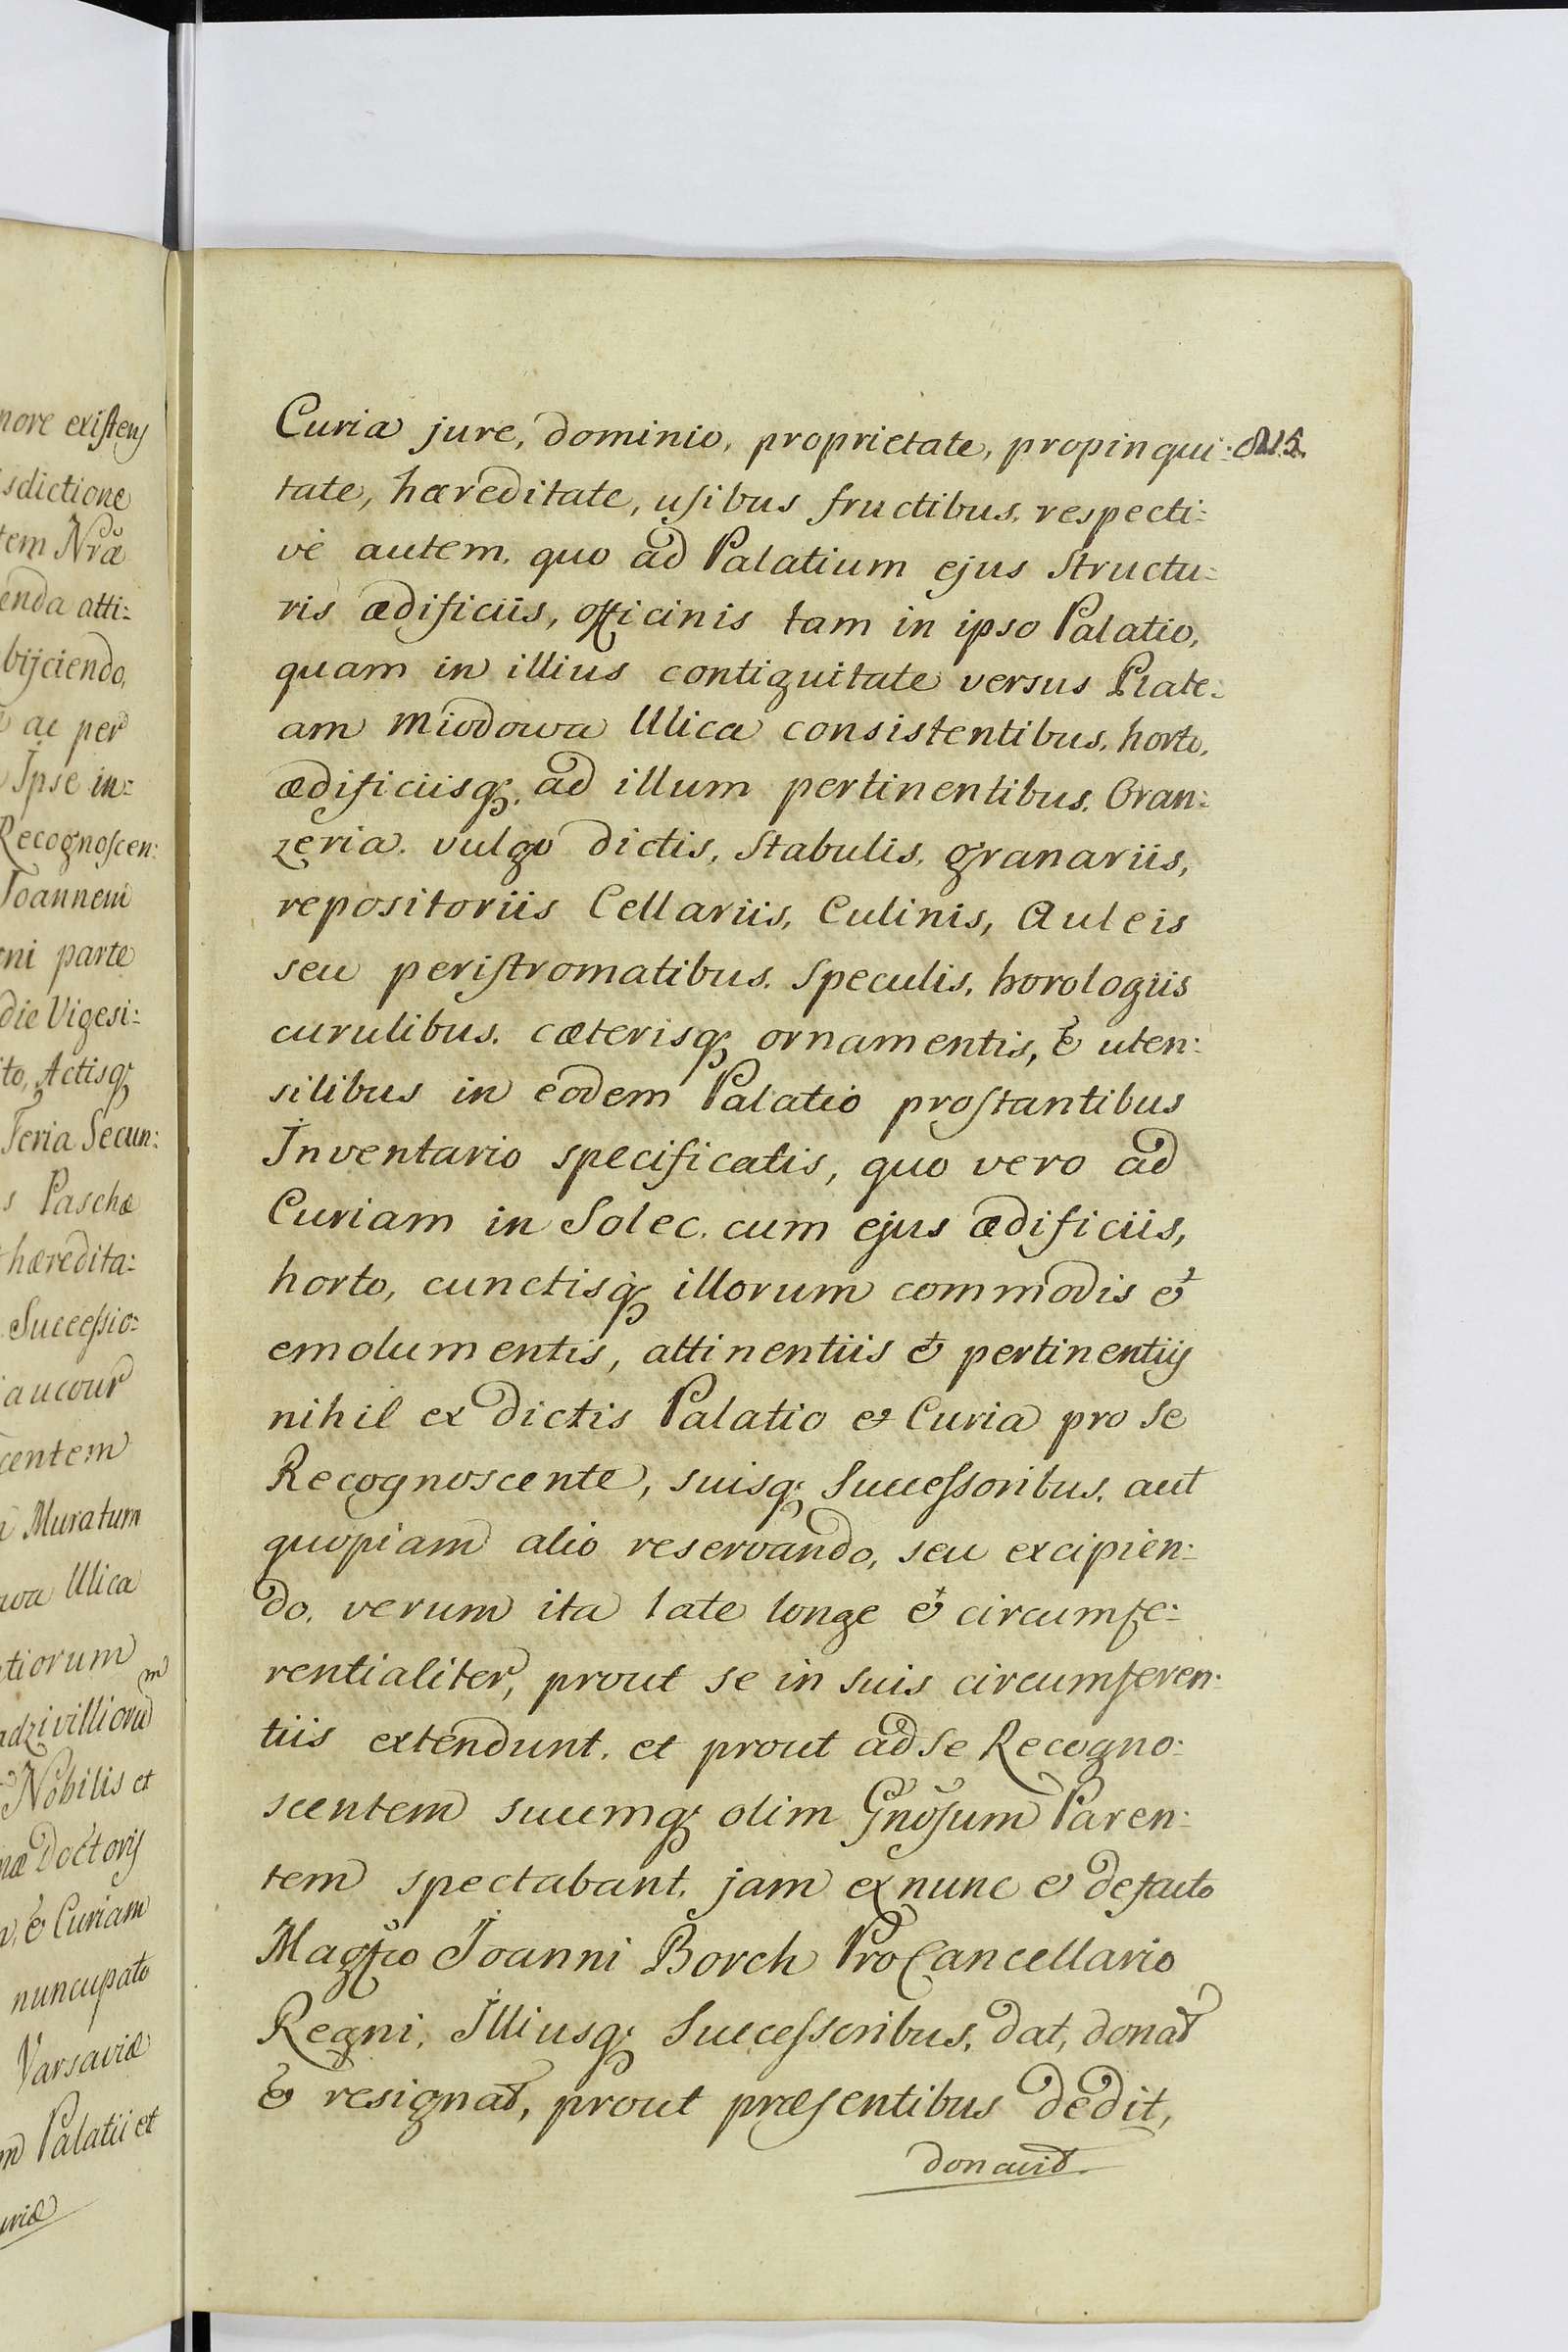 nore existens
sdictione
tem Nrãe
enda atti:
bijciendo,
ac per
Ipse in:
Recognoscen:
Joannem
ni parte
die Vigesi:
to, Actisq;
Feria Secun:
s Paschæ
hæredita:
Successio:
aucour
centem
Muratum
wa Ulica
tiorum
adzivilliorũm
Nobilis et
næ Doctoris
, & Curiam
nuncupato
Varsaviæ
m Palatii et
uriæ
Curia jure, dominio, proprietate, propinqui:
tate, hæreditate, usibus fructibus, respecti:
vè autem, quo ad Palatium ejus Structu:
ris ædificiis, officinis tam in ipso Palatio,
quam in illius contiguitate versus Plate:
am Miodowa Ulica consistentibus, horto,
ædificiisq; ad illum pertinentibus, Oran:
zeria vulgo dictis, Stabulis, granariis,
repositoriis Cellariis, Culinis, Auleis
seu peristromatibus, Speculis, horologiis
curulibus, cæterisq; ornamentis, & uten:
silibus in eodem Palatio prostantibus
Inventario specificatis, quo vero ad
Curiam in Solec, cum ejus ædificiis,
horto, cunctisq; illorum commodis &
emolumentis, attinentiis & pertinentiis
nihil ex dictis Palatio & Curia pro Se
Recognoscente, suisq; Successoribus, aut
quopiam alio reservando, seu excipien:
do, verum ita late longe & circumfe:
rentialiter, prout se in suis circumferen:
tiis extendunt, et prout ad Se Recogno:
scentem suumq; olim Gnõsum Paren:
tem spectabant, jam ex nunc & defacto
Magfco Joanni Borch ProCancellario
Regni, Illiusq; Successoribus, dat, donat
& resignat, prout præsentibus dedit,
donavit